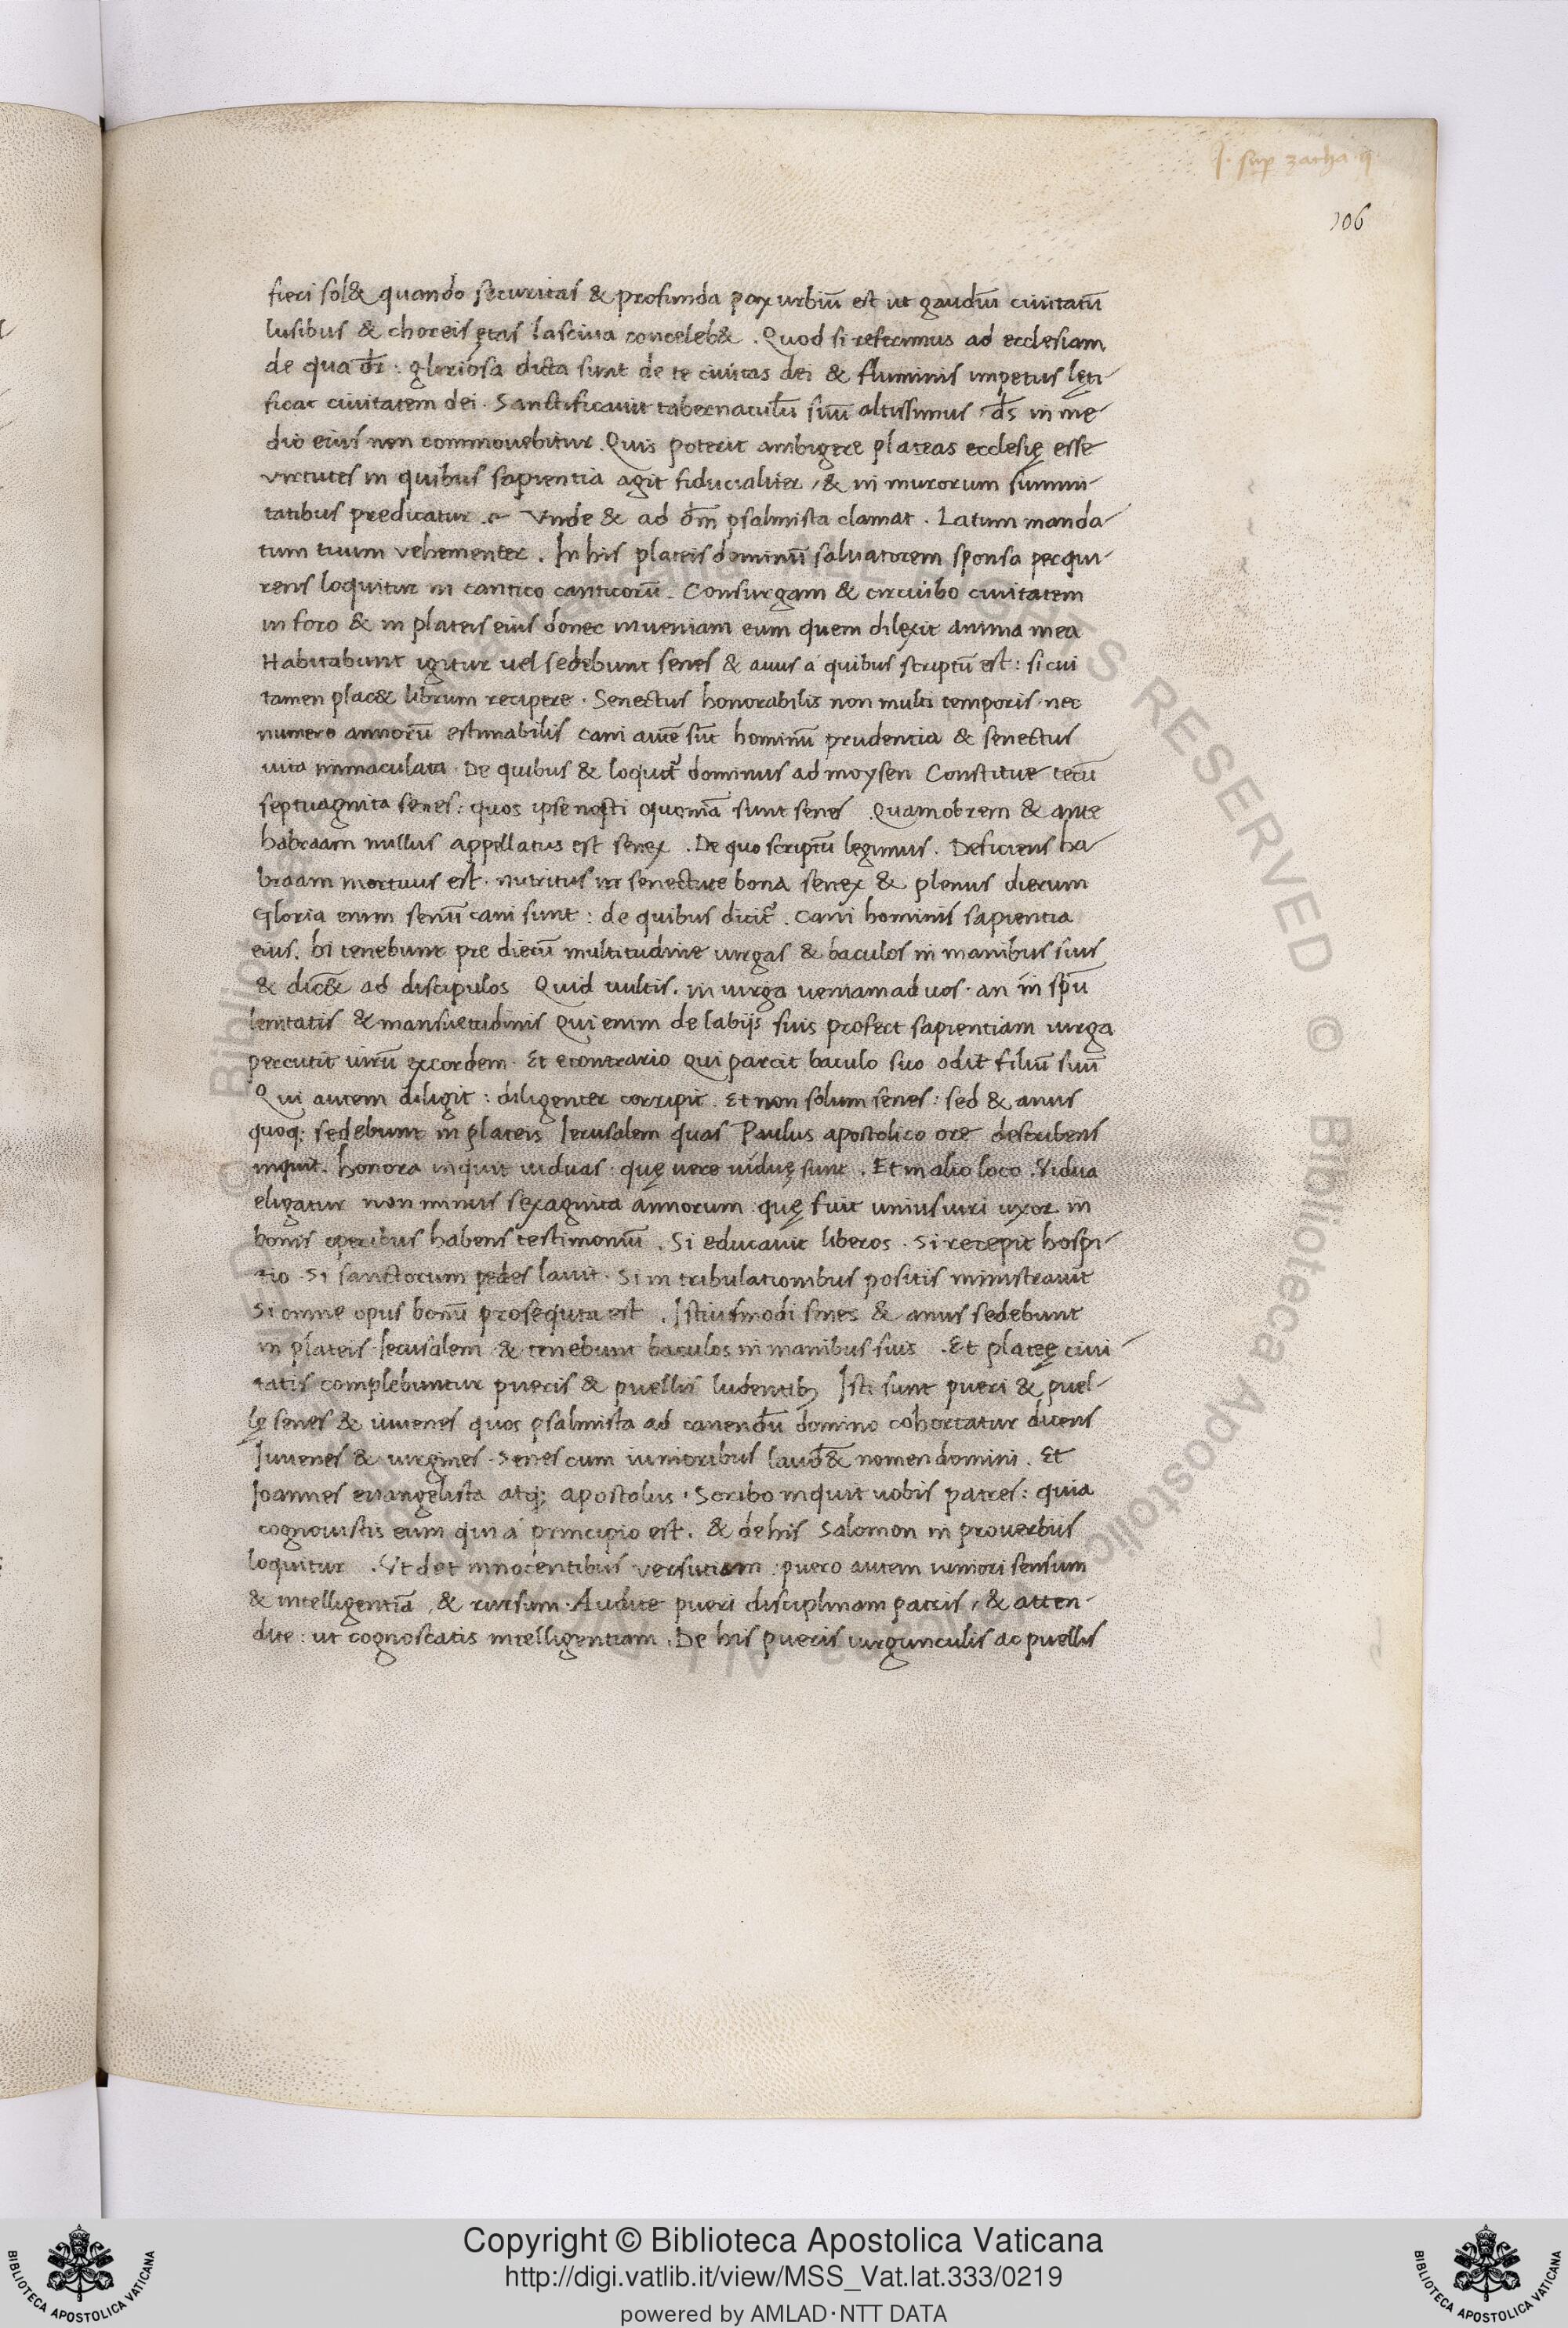 J. sup zacha. ij.
106
fieri sol& quando securitas & profunda pax urbiū est ut gaudiū ciuitatū
lusibus & choreis ętas lasciua conceleb& . Quod si referimus ad ecclesiam
de qua dr̄ : gloriosa dicta sunt de te ciuitas dei & fluminis impetus lęti
ficat ciuitatem dei . Sanctificauit tabernaculū suū altissimus : ds̄ in me
dio eius non commouebitur . Quis poterit ambigere plateas ecclesię esse
virtutes in quibus sapientia agit fiducialiter , & in murorum summi
tatibus predicatur . Vnde & ad dm̄ psalmista clamat . Latum manda
tum tuum vehementer . In his plateis dominū saluatorem sponsa perqui
rens loquitur in cantico canticorū . Consurgam & circuibo ciuitatem
in foro & in plateis eius donec inueniam eum quem dilexit anima mea
Habitabunt igitur uel sedebunt senes & anus á quibus scriptū est : si cui
tamen plac& librum recipere . Senectus honorabilis non multi temporis . nec
numero annorū estimabilis cani autē sūt hominū prudentia & senectus
uita immaculata . De quibus & loquit᷑ dominus ad moysen Constitue tecū
septuaginta senes : quos ipse nosti quoniā sunt senes Quamobrem & ante
habraam nullus appellatus est senex . De quo scriptū legimus . Deficiens ha
braam mortuus est . nutritus in senectute bona senex & plenus dierum
Gloria enim senū cani sunt : de quibus dicit᷑ . Cani hominis sapientia
eius . hi tenebunt pre dierū multitudine uirgas & baculos in manibus suis
& dic̄& ad discipulos Quid uultis . in uirga ueniam ad uos . an in spū
lenitatis & mansuetudinis Qui enim de labijs suis profert sapientiam uirga
percutit uirū excordem . Et econtrario qui parcit baculo suo odit filiū suū
Qui autem diligit : diligenter corripit . Et non solum senes : sed & anus
quoq; sedebunt in plateis Ierusalem quas Paulus apostolico ore describens
inquit . honora inquit uiduas : quę uere uiduę sunt . Et in alio loco . Vidua
eligatur non minus sexaginta annorum quę fuit unius uiri uxor in
bonis operibus habens testimoniū . Si educauit liberos . si recepit hospi
tio . Si sanctorum pedes lauit . Si in tribulationibus positis ministrauit
Si omne opus bonū prosequuta est . Istiusmodi senes & anus sedebunt
in plateis Ierusalem & tenebunt baculos in manibus suis . Et plateę ciui
tatis complebuntur pueris & puellis ludentibȝ Isti sunt pueri & puel
lę senes & iuuenes quos psalmista ad canendū domino cohortatur dicens
Iuuenes & uirgines . Senes cum iunioribus laud& nomen domini . Et
Joannes euangelista atq; apostolus . Scribo inquit uobis patres : quia
cognouistis eum qui á principio est . & de his Salomon in prouerbiis
loquitur . Vt det innocentibus versutiam : puero autem iuniori sensum
& intelligentiā , & rursum . Audite pueri disciplinam patris , & atten
dite : ut cognoscatis intelligentiam . De his pueris uirgunculis ac puellis
Copyright © Biblioteca Apostolica Vaticana
http://digi.vatlib.it/view/MSS_Vat.lat.333/0219
powered by AMLAD·NTT DATA